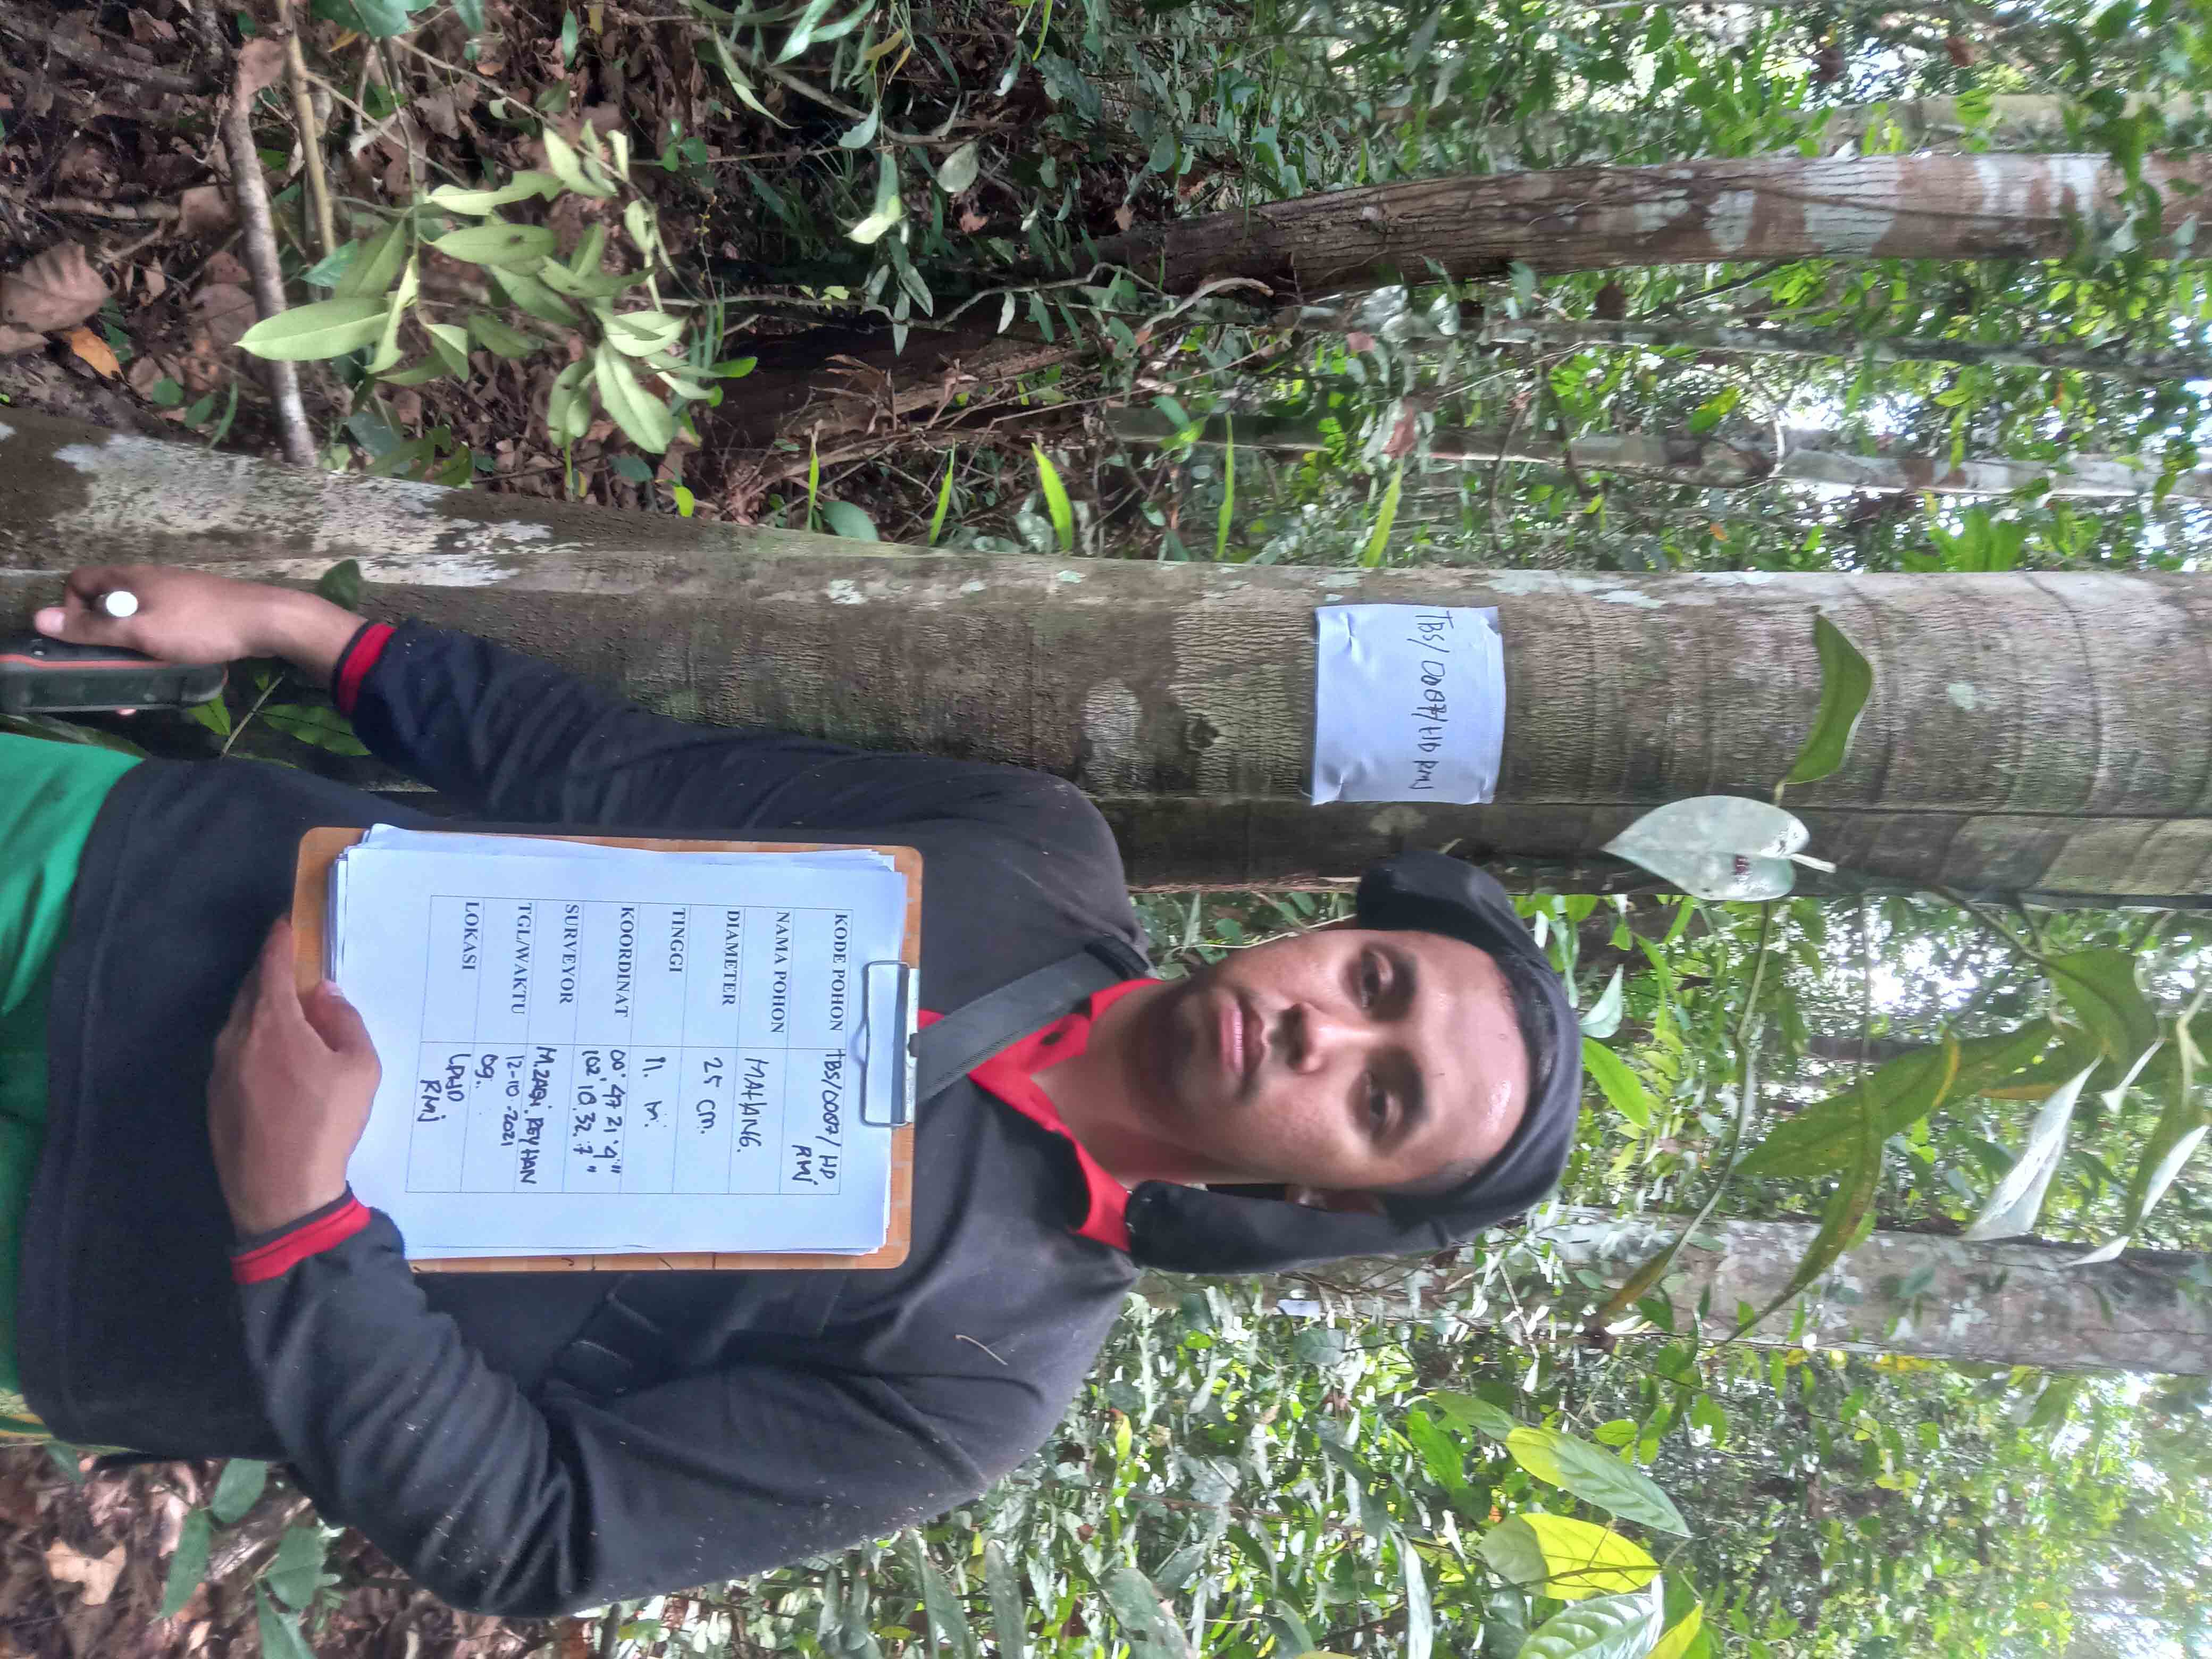 TBS/0007/HP RMJ
KODE POHON TBS/0007/HP
RMJ
NAMA POHON MAHANG.
DIAMETER 25 cm.
TINGGI 11. m.
KOORDINAT 00° 47' 21.9"
102 10. 32. 7"
SURVEYOR M. ZAQI. REYHAN
TGL/WAKTU 12-10-2021
09.
LOKASI LPHD
RMJ